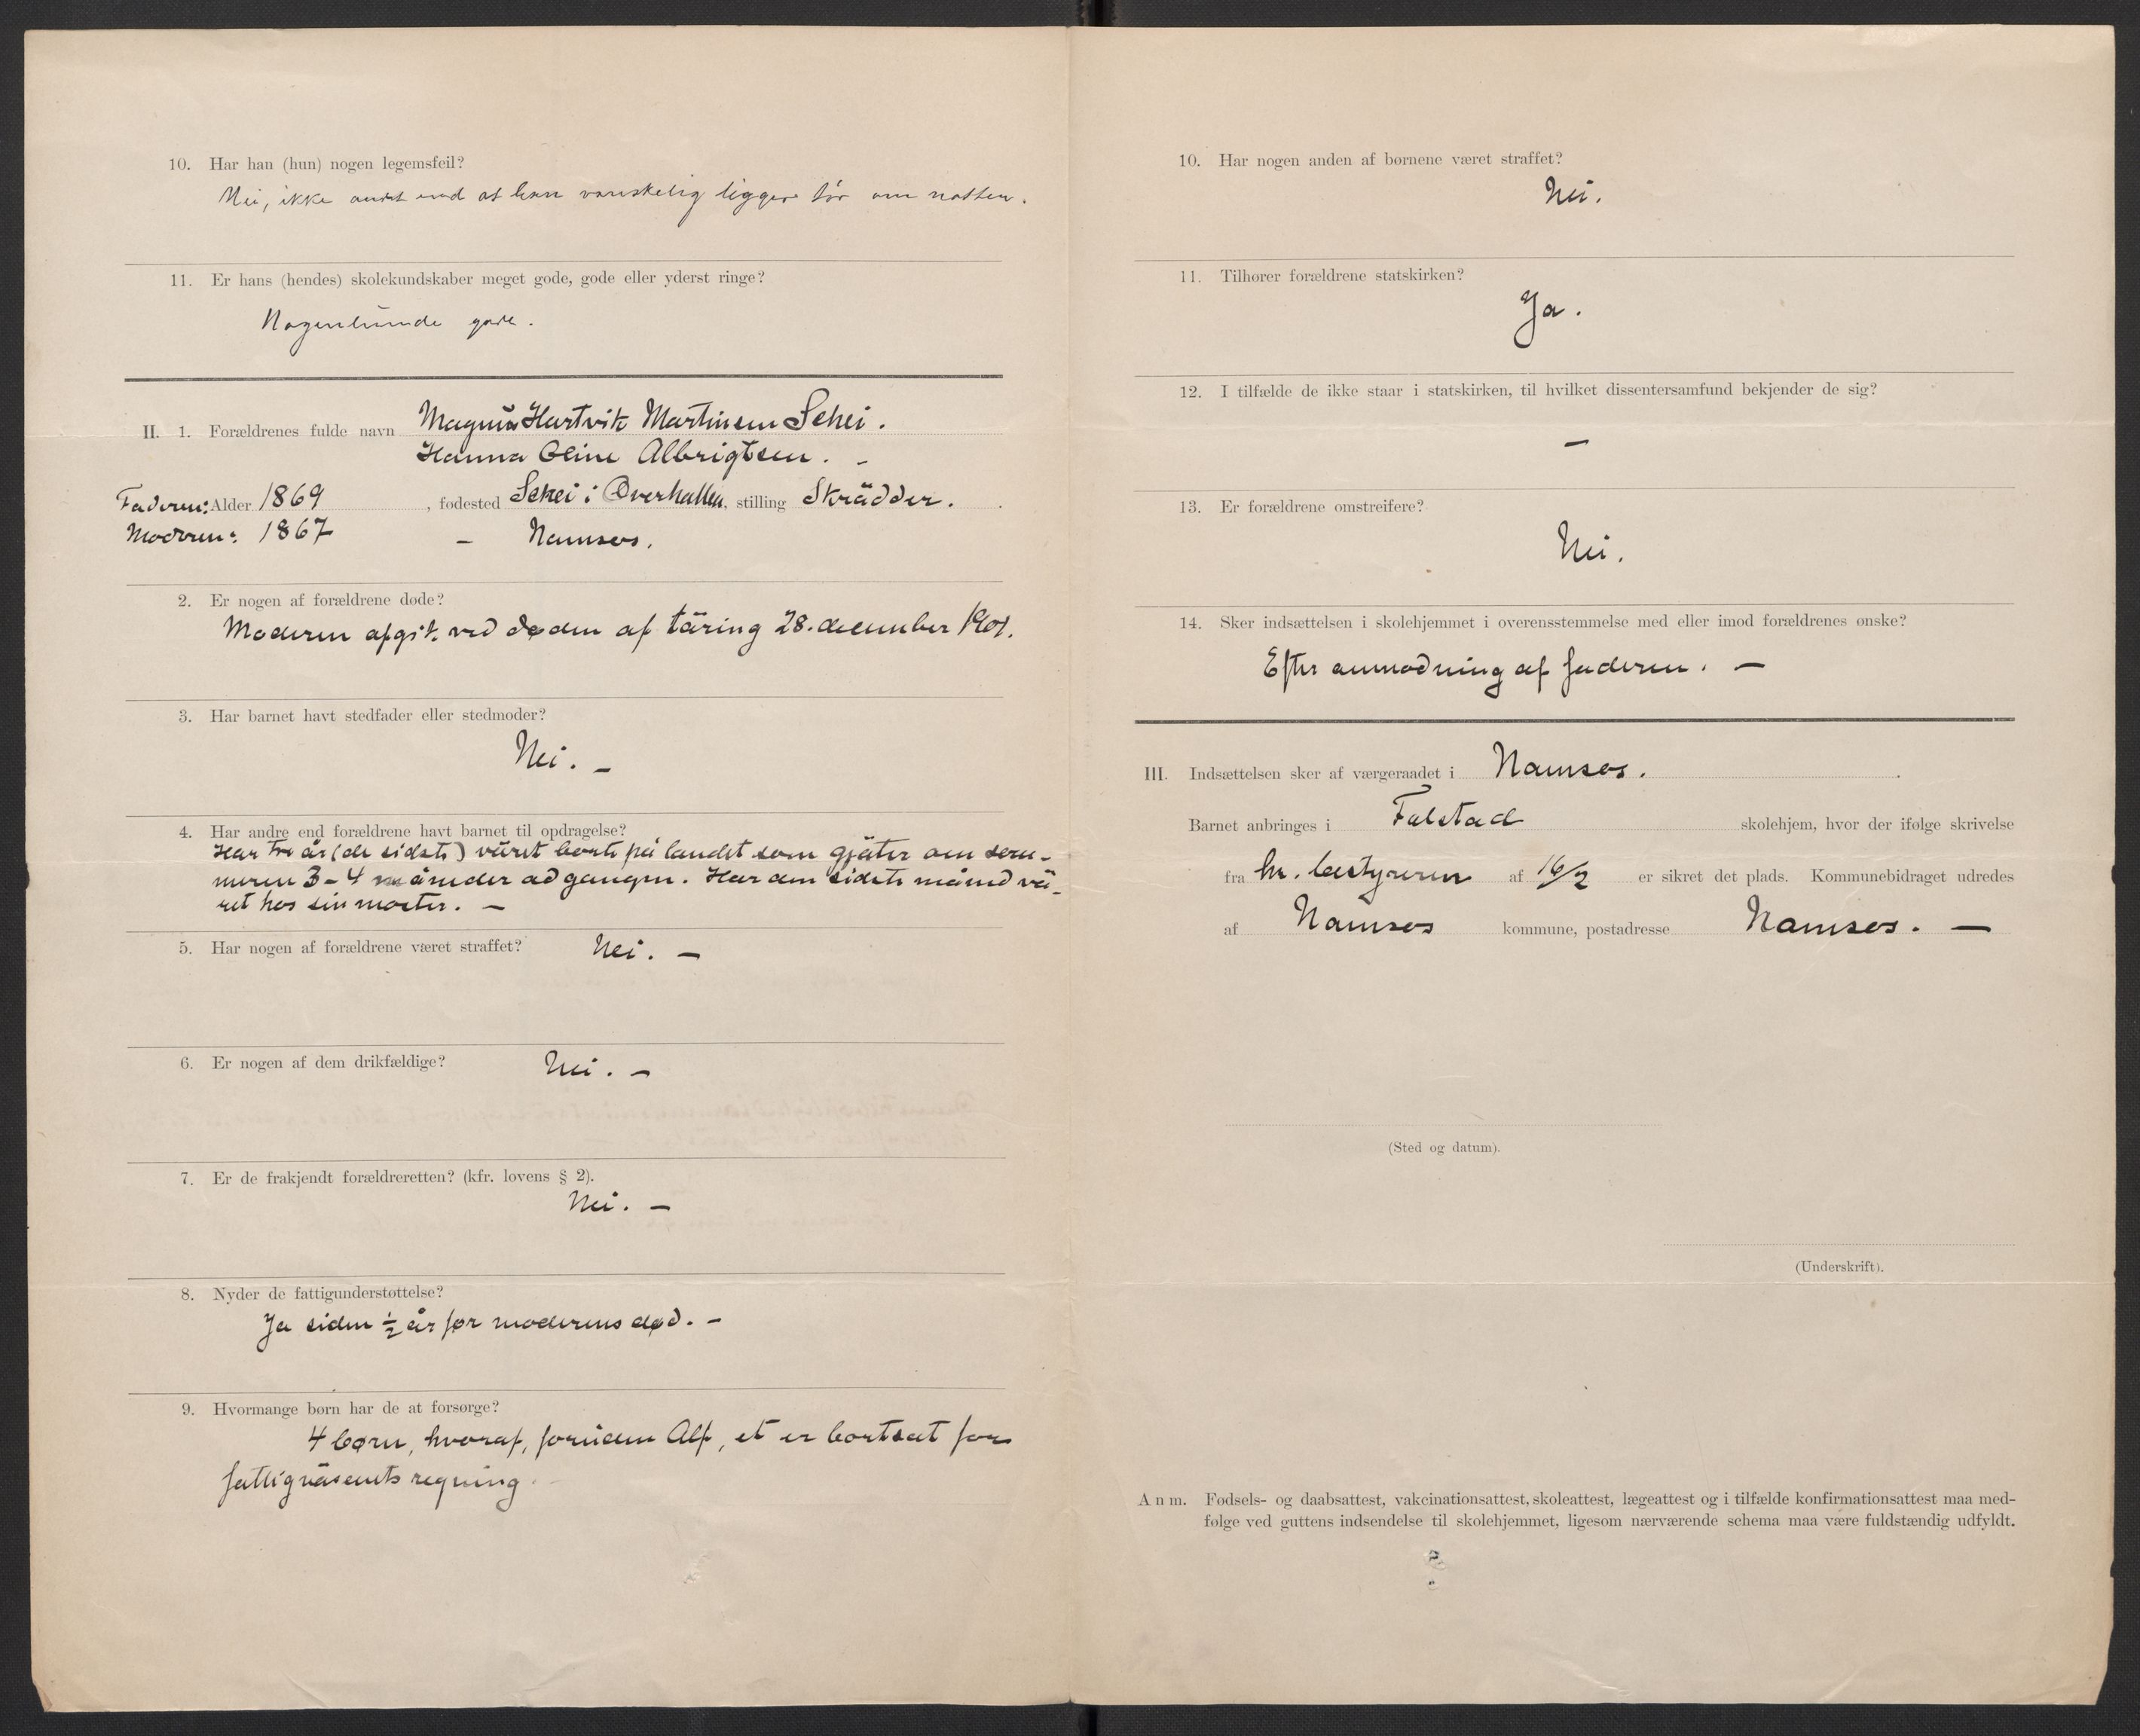 10. Har han (hun) nogen legemsfeil?
Nei, ikke andet end at han vanskelig ligger tør om natten.
11. Er hans (hendes) skolekundskaber meget gode, gode eller yderst ringe?
Nogenlunde gode.
II. 1. Forældrenes fulde navn Magnus Hartvik Martinsen Schei.
Hanna Oline Albrigtsen. -
Faderen: Alder 1869, fødested Schei i Overhallen, stilling Skrädder.
Moderen: 1867 - Namsos.
2. Er nogen af forældrene døde?
Moderen afgik ved døden af täring 28. december 1901.
3. Har barnet havt stedfader eller stedmoder?
Nei. -
4. Har andre end forældrene havt barnet til opdragelse?
Har tre år (de sidste) väret borte på landet som gjäter om som-
meren 3-4 måneder ad gangen. Har den sidste måned vä-
ret hos sin moster. -
5. Har nogen af forældrene været straffet? Nei. -
6. Er nogen af dem drikfældige? Nei. -
7. Er de frakjendt forældreretten? (kfr. lovens § 2).
Nei. -
8. Nyder de fattigunderstøttelse?
Ja siden ½ år før moderens død. -
9. Hvormange børn har de at forsørge?
4 børn, hvoraf, foruden Alf, et er bortsat for
fattigväsenets regning.
10. Har nogen anden af børnene været straffet?
Nei.
11. Tilhører forældrene statskirken?
Ja.
12. I tilfælde de ikke staar i statskirken, til hvilket dissentersamfund bekjender de sig?
-
13. Er forældrene omstreifere?
Nei.
14. Sker indsættelsen i skolehjemmet i overensstemmelse med eller imod forældrenes ønske?
Efter anmodning af faderen. -
III. Indsættelsen sker af værgeraadet i Namsos.
Barnet anbringes i Falstad skolehjem, hvor der ifølge skrivelse
fra hr. bestyreren af 16/2 er sikret det plads. Kommunebidraget udredes
af Namsos kommune, postadresse Namsos. -
(Sted og datum).
(Underskrift).
Anm. Fødsels- og daabsattest, vakcinationsattest, skoleattest, lægeattest og i tilfælde konfirmationsattest maa med-
følge ved guttens indsendelse til skolehjemmet, ligesom nærværende schema maa være fuldstændig udfyldt.